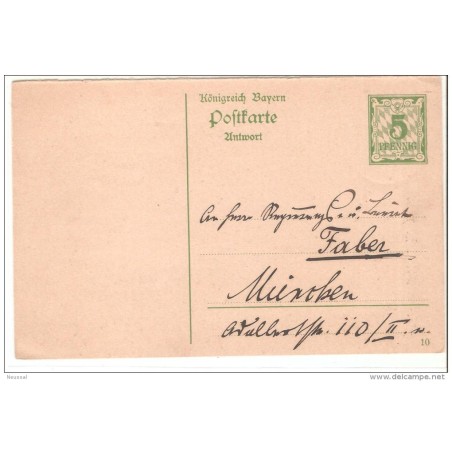 Königreich Bayern
Postkarte
Antwort
5
PFENNIG
An Herrn Regierungs- u.
Faber
München
Adalbertstr. 110/II r.
10
Neussal
delcampe.net